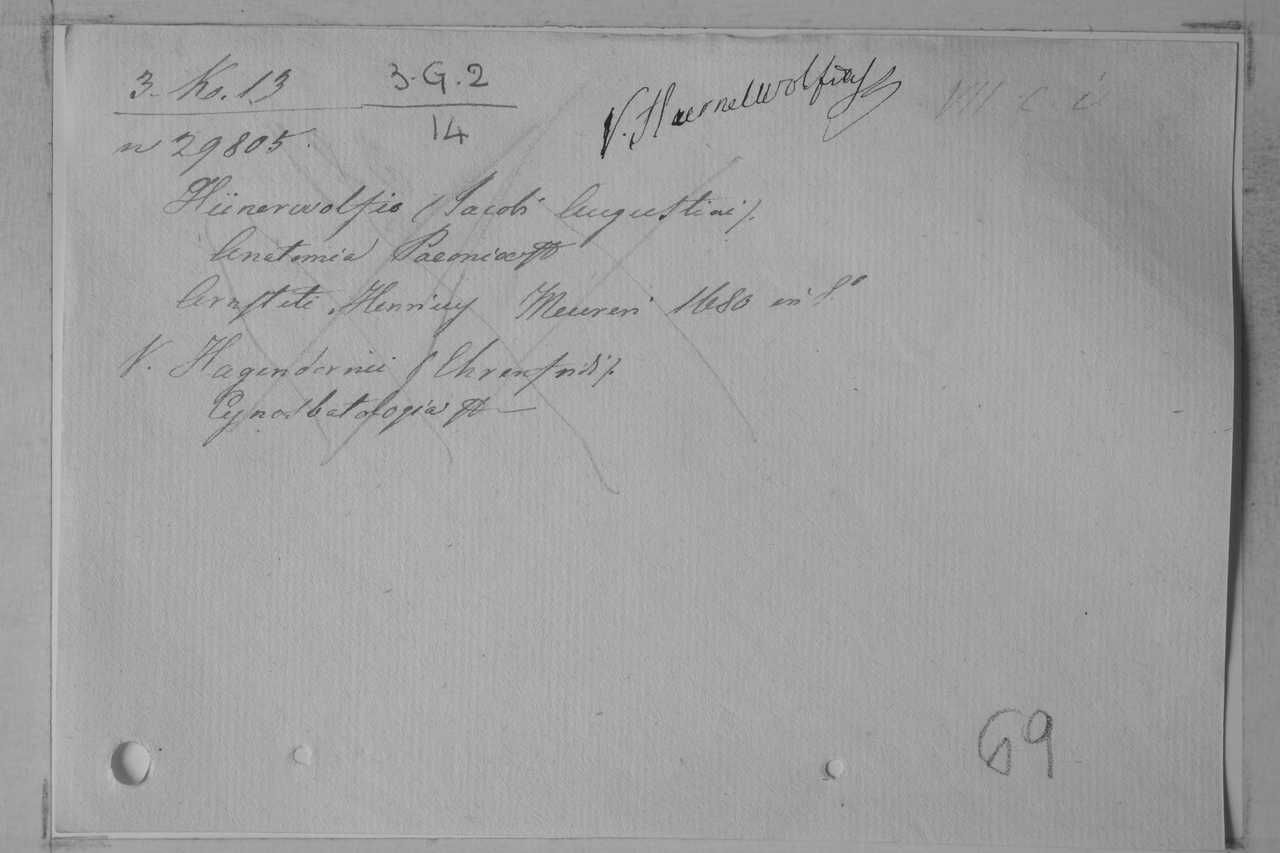 3. Ko. 13
3.G.2
14
V. Huernelwolfius
VII c. i
n 29805.
Hünerwolfio (Jacobi Augustini).
Anatomia Paeoniae
Arnsteti Henricus Meureri 1680 in 8°
V. Hagendornii (Ehrenfridi).
Cynosbatologia —
69